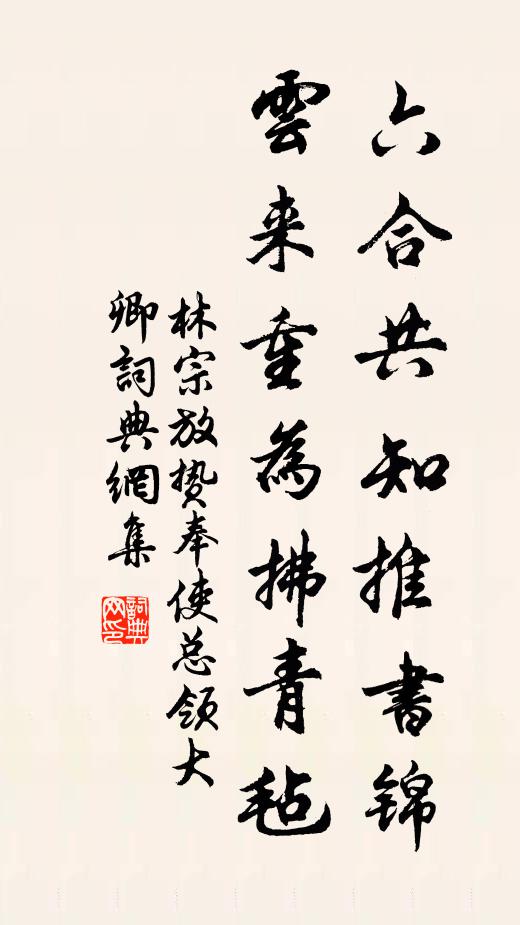 六合共知推書锦
雲来重為拂青毡
林宗放贽奉使总领大
卿詞典網集
詞典网印